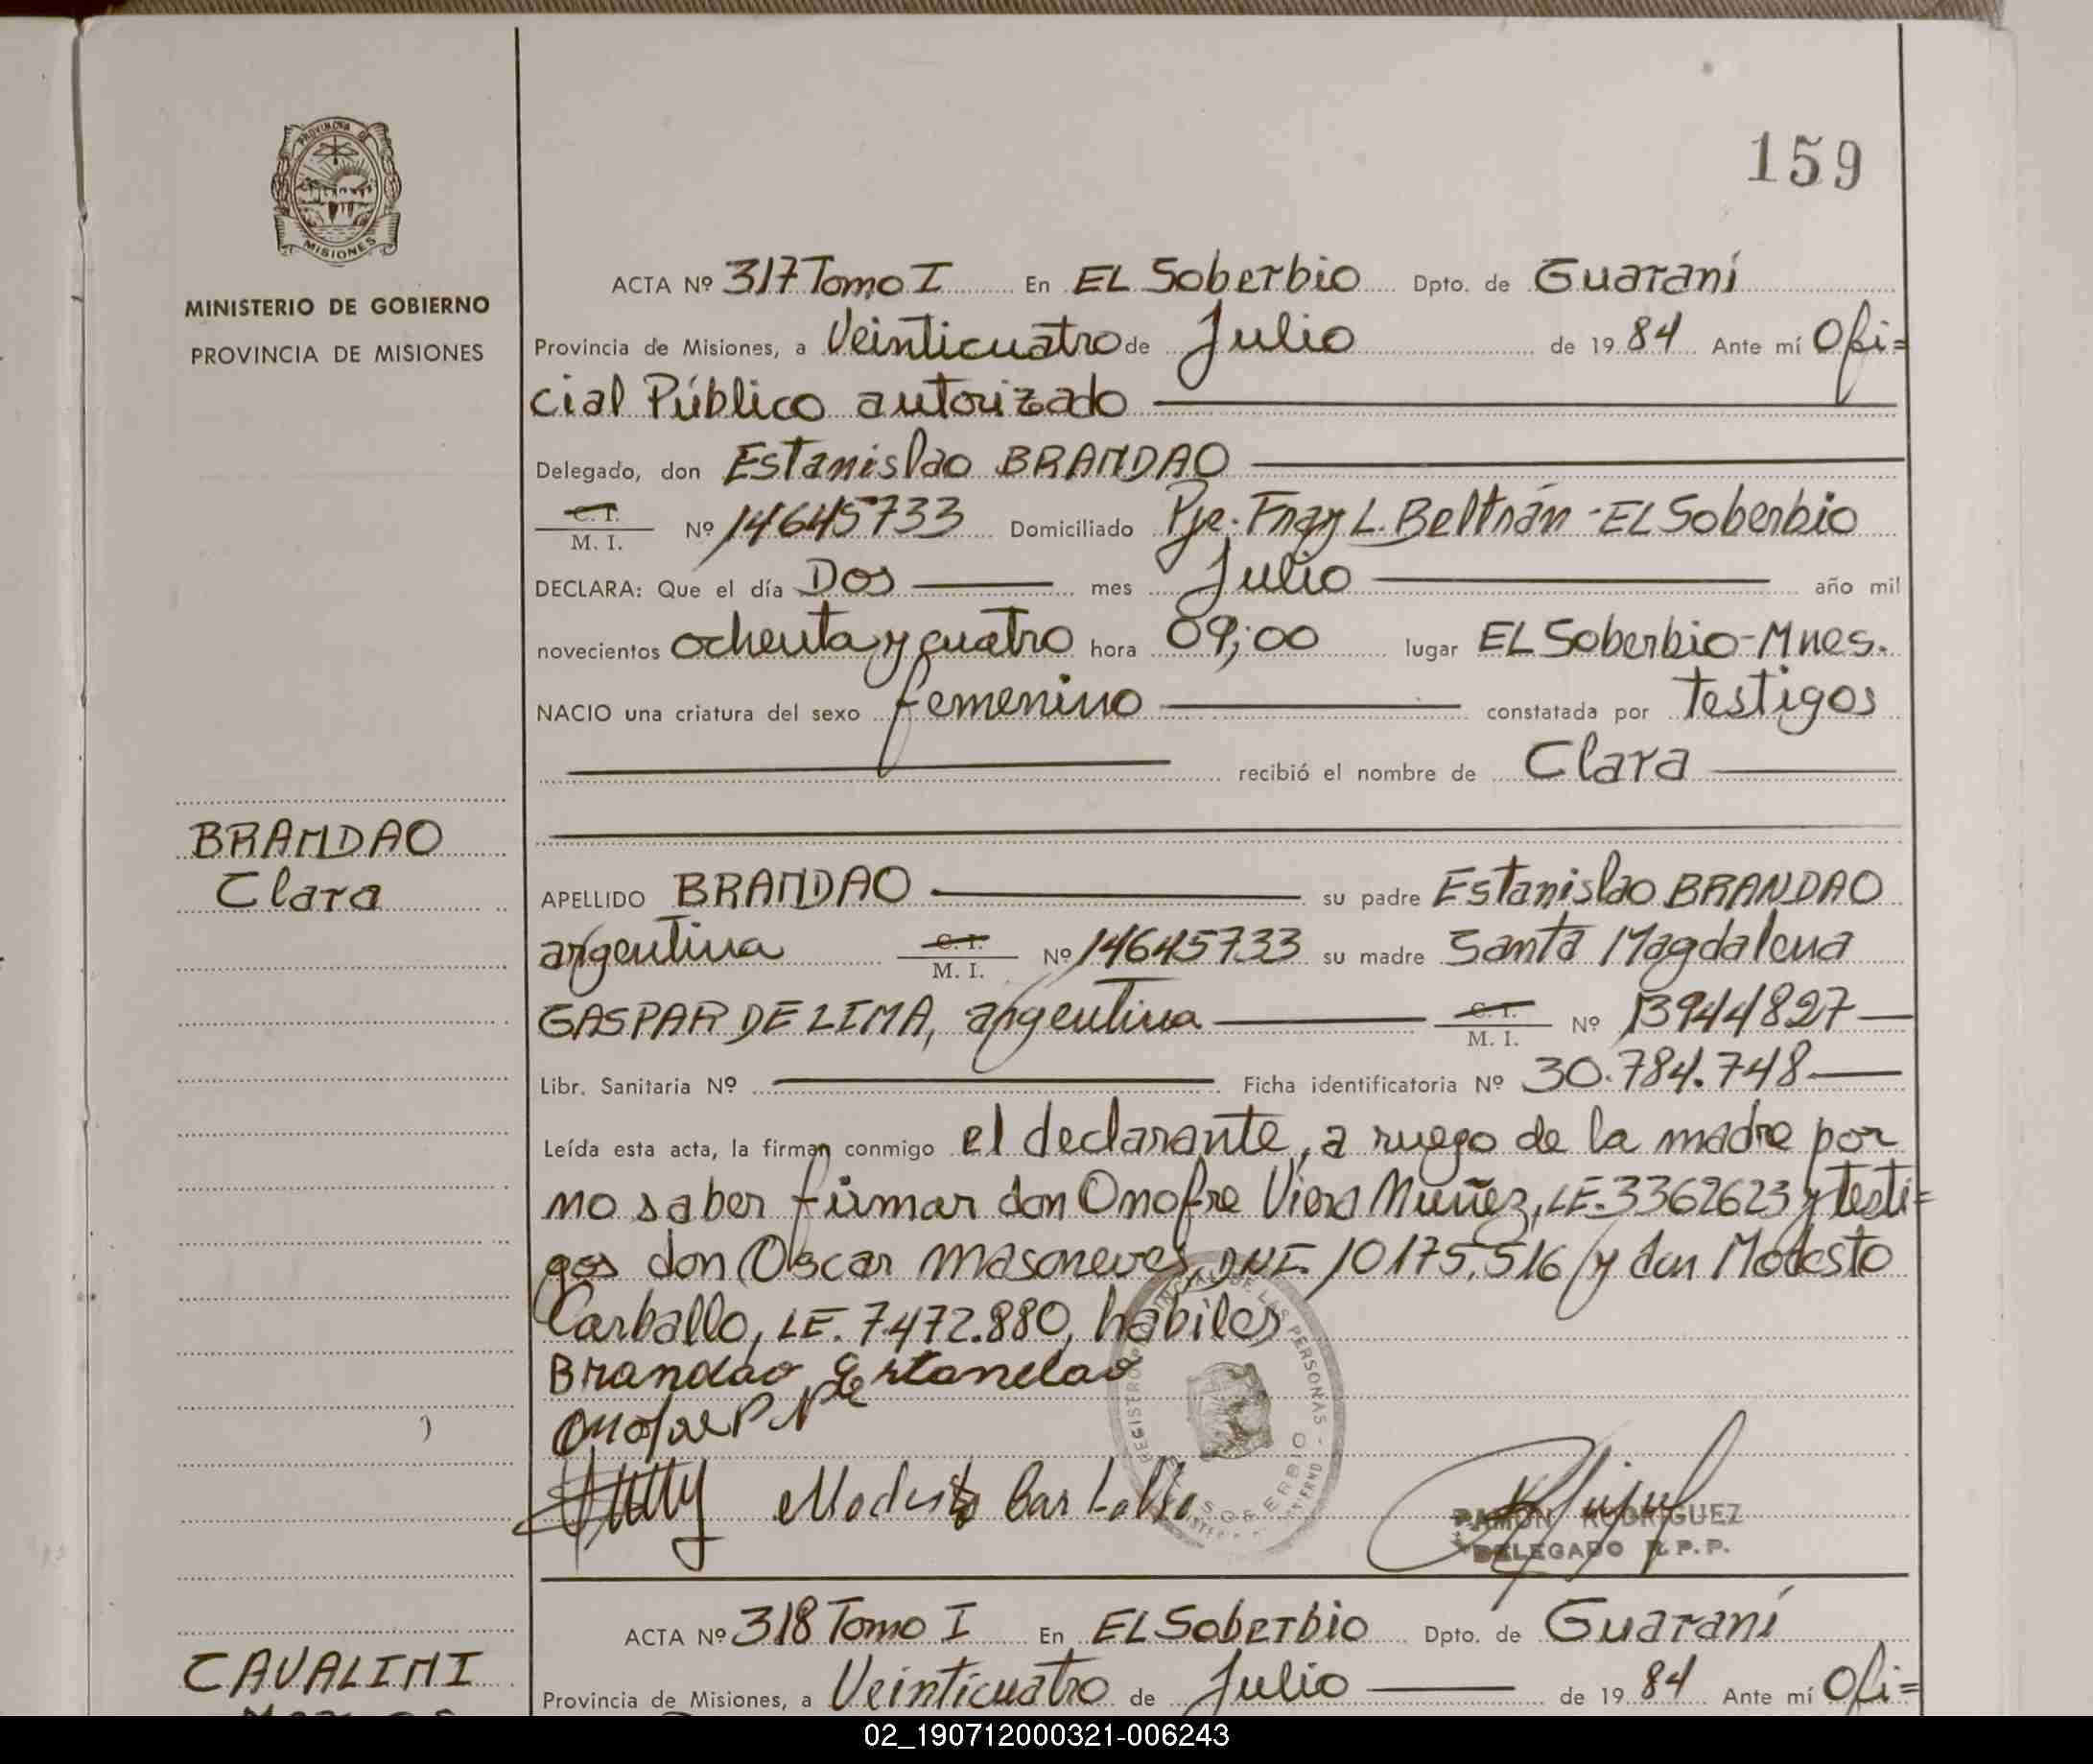 PROVINCIA DE
MISIONES
MINISTERIO DE GOBIERNO
PROVINCIA DE MISIONES
159
ACTA Nº 317 Tomo I En EL Soberbio Dpto. de Guaraní
Provincia de Misiones, a Veinticuatro de Julio de 19 84 Ante mí Ofi=
cial Público autorizado
Delegado, don Estanislao BRANDAO
C. I.
M. I. Nº 14645733 Domiciliado Pje. Fray L. Beltrán - EL Soberbio
DECLARA: Que el día Dos mes Julio año mil
novecientos ochenta y cuatro hora 09;00 lugar EL Soberbio-Mnes.
NACIO una criatura del sexo femenino constatada por testigos
recibió el nombre de Clara
BRANDAO
Clara
APELLIDO BRANDAO su padre Estanislao BRANDAO
argentina C. I. M. I. Nº 14645733 su madre Santa Magdalena
GASPAR DE LIMA, argentina C. I. M. I. Nº 13944827
Libr. Sanitaria Nº Ficha identificatoria Nº 30.784.748
Leída esta acta, la firman conmigo el declarante, a ruego de la madre por
no saber firmar don Onofre Viera Muñez, LE. 3362623 y testi=
gos don Oscar Masoneves, DNI. 10175.516 y don Modesto
Carballo, LE. 7.472.880, hábiles
Brandao Estanelao
Modesto Carballo
REGISTRO PROVINCIAL DE LAS PERSONAS -
SOBERBIO
RAMON RODRIGUEZ
DELEGADO R.P.P.
ACTA Nº 318 Tomo I En EL Soberbio Dpto. de Guaraní
CAVALINI
Provincia de Misiones, a Veinticuatro de Julio de 19 84 Ante mí Ofi=
02_190712000321-006243